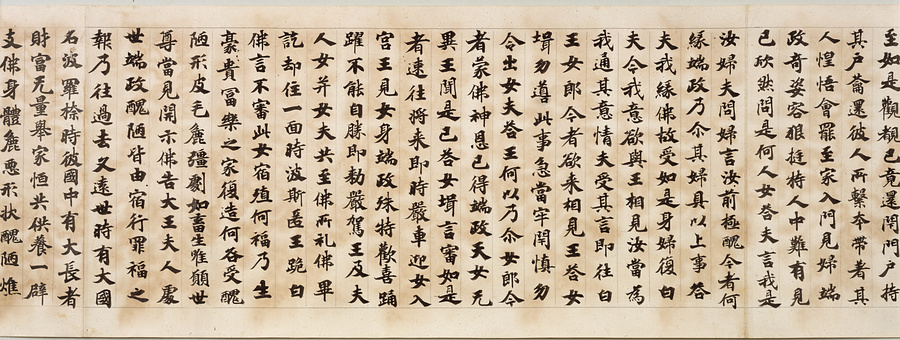 至如是觀覩已竟還閇門戶持
其戶鑰還彼人所繫本帶著其
人惺悟會罷至家入門見婦端
政奇姿容狼挺特人中難有見
已欣然問是何人女荅夫言我是
汝婦夫問婦言汝前極醜今者何
緣端政乃尒其婦具以上事荅
夫我緣佛故受如是身婦復白
夫今我意欲與王相見汝當為
我通其意情夫受其言即往白
王女郎今者欲来相見王荅女
壻勿遵此事急當牢閇慎勿
令出女夫荅王何以乃尒女郎今
者蒙佛神恩已得端政天女无
異王聞是已荅女壻言審如是
者速往将来即時嚴車迎女入
宮王見女身端政殊特歡喜踊
躍不能自勝即勑嚴駕王及夫
人女并女夫共至佛所礼佛畢
訖却住一面時波斯匿王跪白
佛言不審此女宿殖何福乃生
豪貴冨樂之家復造何咎受醜
陋形皮毛麁彊劇如畜生唯願世
尊當見開示佛告大王夫人處
世端政醜陋皆由宿行罪福之
報乃往過去久遠世時有大國
名波羅捺時彼國中有大長者
財冨无量舉家恒共供養一辟
支佛身體麁惡形狀醜陋憔